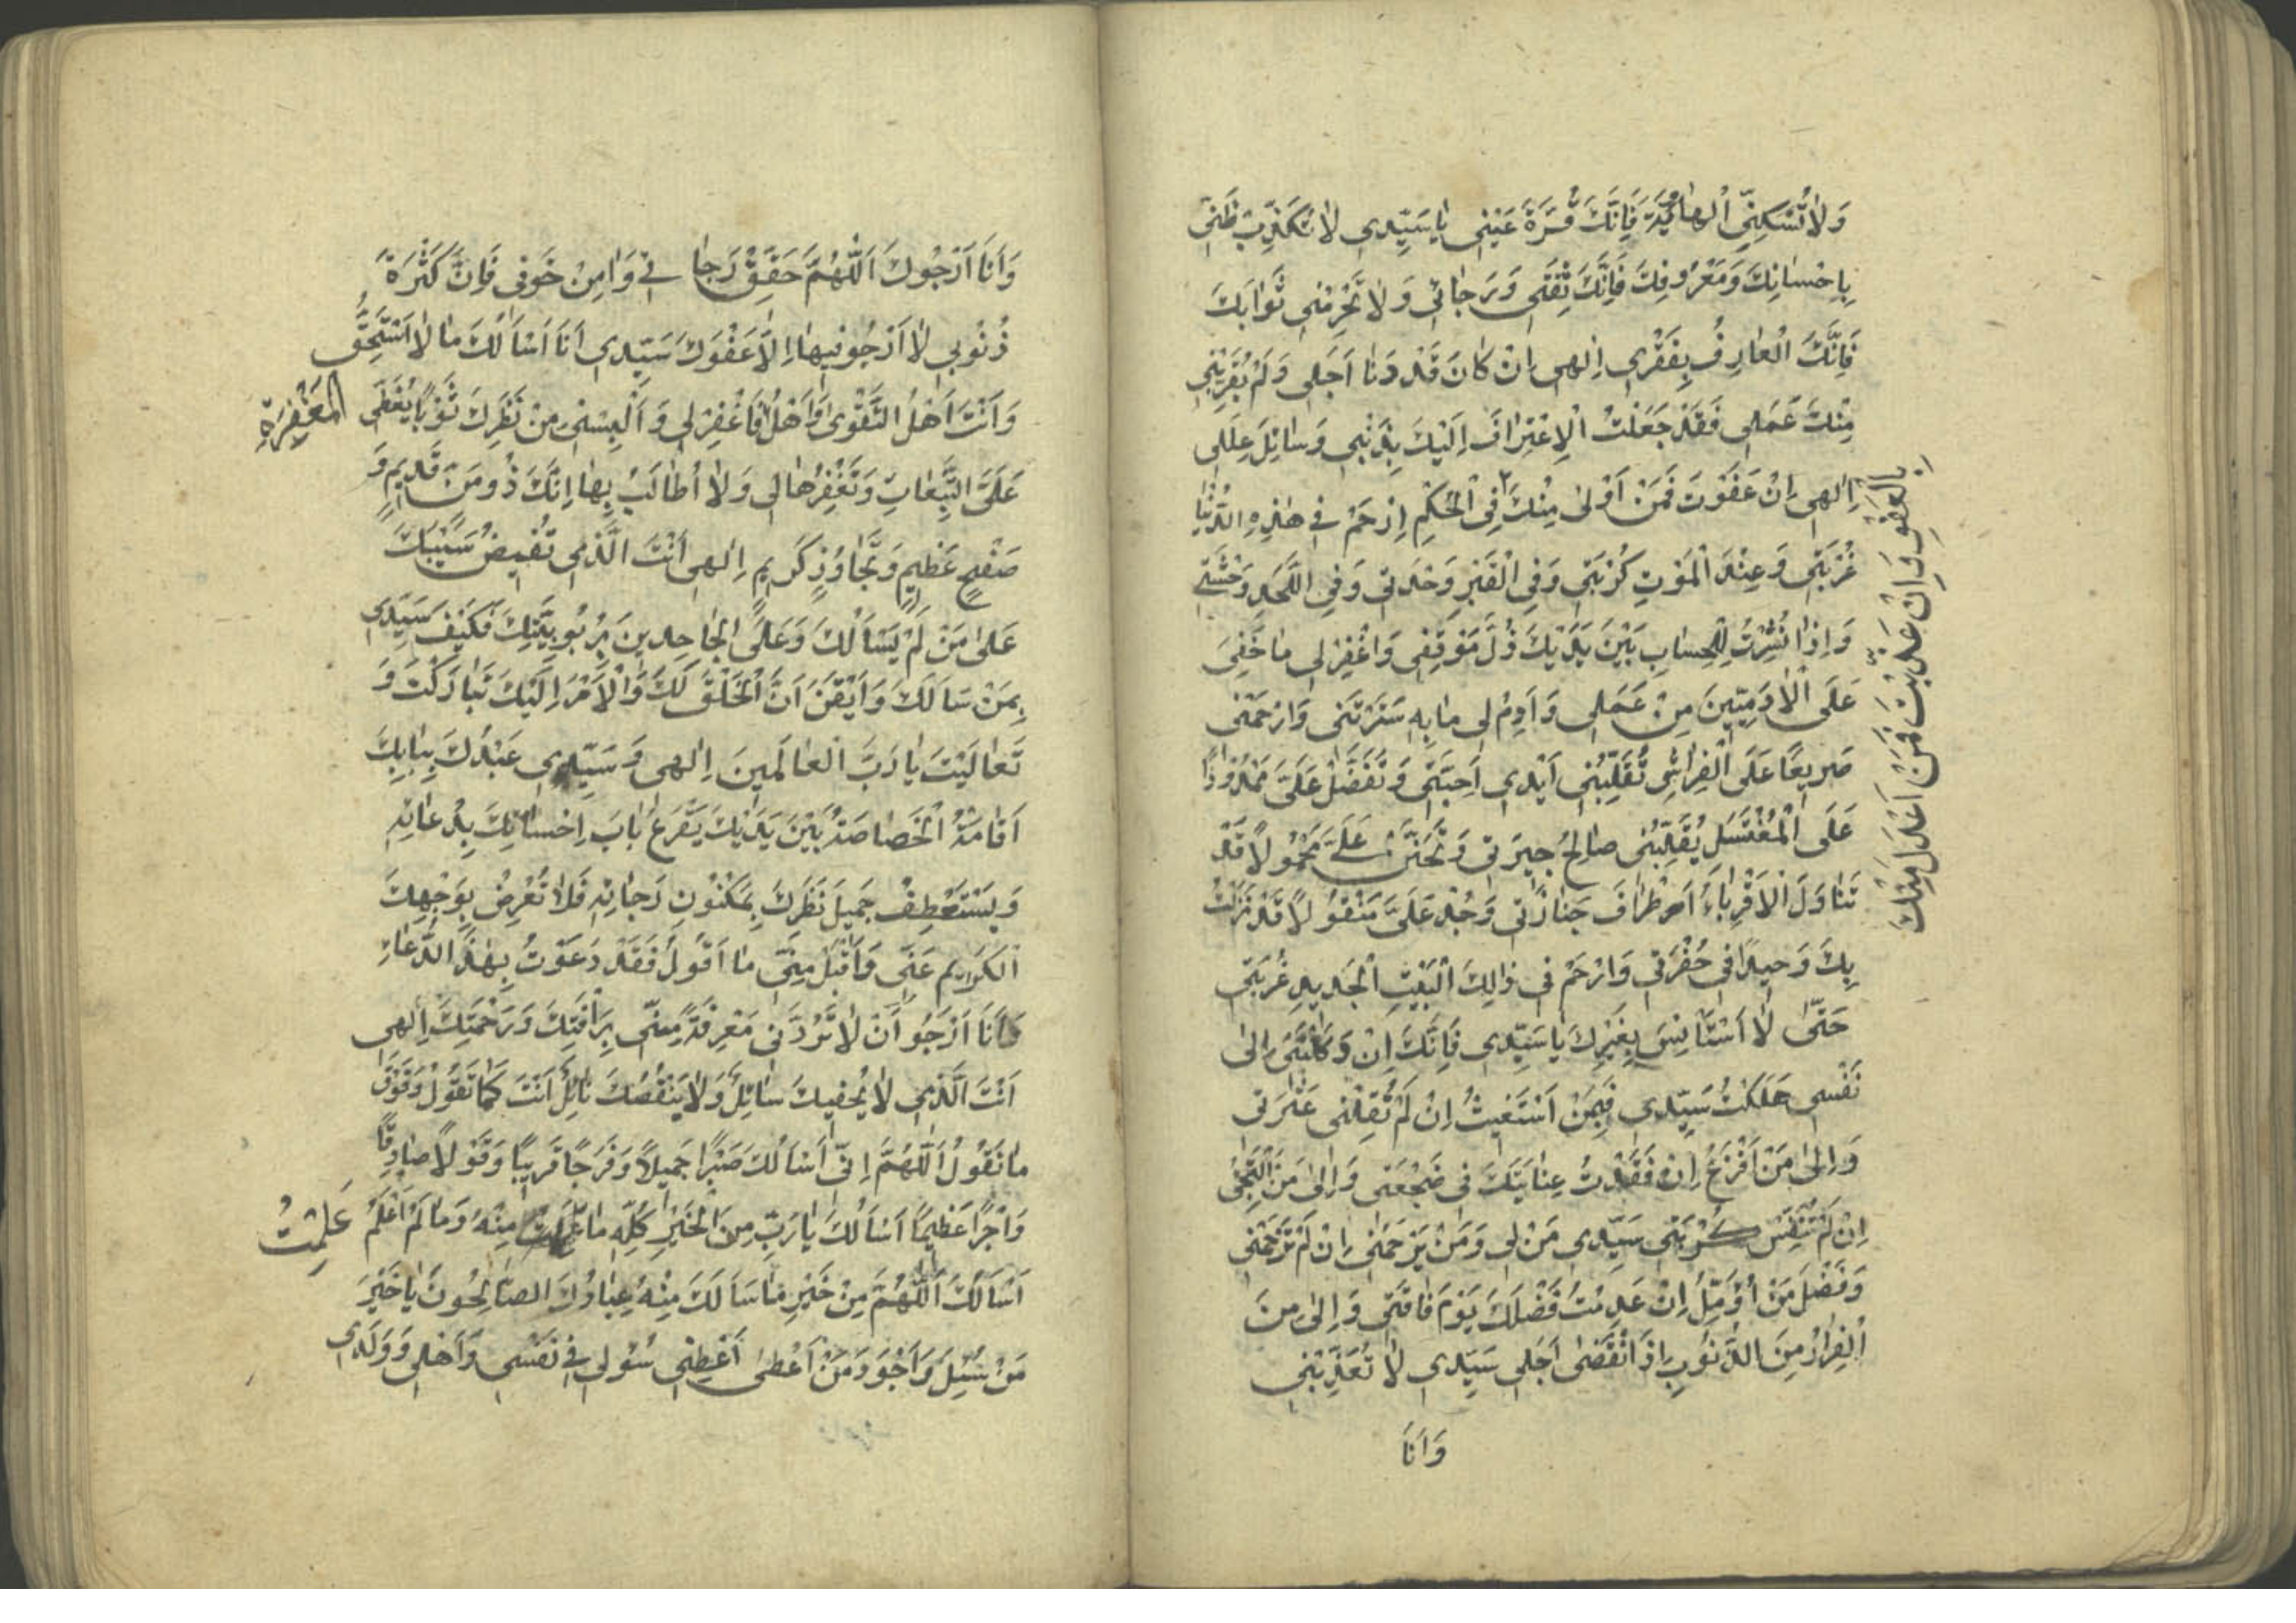 وَلاٰتُسْكِنِّي اْلهٰاوِيَةَ فَاِنَّكَ قُرَّةُ عَيْنِي يٰا سَيِّدِي لاٰتُكَذِّبْ ظَنّي
بِاِحْسٰانِكَ وَمَعْرُوفِكَ فَاِنَّكَ ثِقَتي وَرَجٰائي وَلاٰتَحْرِمْنِي ثَوٰابَكَ
فَاِنَّكَ الْعٰارِفُ بِفَقْري اِلٰهى اِنْ كٰانَ قَدْ دَنٰا اَجَلي وَلَمْ يُقَرِّبْنِي
مِنْكَ عَمَلي فَقَدْ جَعَلْتُ الْاِعْتِرٰافَ اِلَيْكَ بِذَنْبي وَسٰائِلَ عِلَلي
اِلٰهي اِنْ عَفَوْتَ فَمَنْ اَوْلىٰ مِنْكَ فِي الْحُكْمِ اِرْحَمْ في هٰذِهِ الدُّنْيٰا
بِالْعَفْوِ وَاِنْ عَذَّبْتَ فَمَنْ اَعْدَلُ مِنْكَ
غُرْبَتي وَعِنْدَ الْمَوْتِ كُرْبَتي وَفِي الْقَبْرِ وَحْدَتي وَفِي اللَّحْدِ وَحْشَتي
وَاِذٰا نُشِرْتُ لِلْحِسٰابِ بَيْنَ يَدَيْكَ ذُلَّ مَوْقِفي وَاغْفِرْلي مٰا خَفِيَ
عَلَى الْاٰدَمِيّينَ مِنْ عَمَلي وَاَدِمْ لي مٰا بِهِ سَتَرْتَني وَارْحَمْني
صَريعًا عَلَى الْفِرٰاشِ تُقَلِّبُني اَيْدي اَحِبَّتي وَتَفَضَّلْ عَلَيَّ مَمْدُودًا
عَلَى الْمُغْتَسَلِ يُقَلِّبُني صٰالِحُ جيرَتي وَتَحَنَّنْ عَلَيَّ مَحْمُولاً قَدْ
تَنٰاوَلَ الْاَقْرِبٰاءُ اَطْرٰافَ جَنٰازَتي وَجُدْ عَلَيَّ مَنْقُولاً قَدْ نَزَلْتُ
بِكَ وَحيدًا في حُفْرَتي وَارْحَمْ في ذٰلِكَ الْبَيْتِ الْجَديدِ غُرْبَتي
حَتّىٰ لٰا اَسْتَأْنِسَ بِغَيْرِكَ يٰا سَيِّدي فَاِنَّكَ اِنْ وَكَلْتَني اِلىٰ
نَفْسي هَلَكْتُ سَيِّدي فَبِمَنْ اَسْتَغيثُ اِنْ لَمْ تُقِلْني عَثْرَتي
وَاِلىٰ مَنْ اَفْزَعُ اِنْ فَقَدْتُ عِنٰايَتَكَ في ضَجْعَتي وَاِلىٰ مَنْ اَلْتَجِئُ
اِنْ لَمْ تُنَفِّسْ كُرْبَتي سَيِّدي مَنْ لي وَمَنْ يَرْحَمُني اِنْ لَمْ تَرْحَمْني
وَفَضْلَ مَنْ اُؤَمِّلُ اِنْ عَدِمْتُ فَضْلَكَ يَوْمَ فٰاقَتي وَاِلىٰ مِنَ
الْفِرٰارُ مِنَ الذُّنُوبِ اِذَا انْقَضىٰ اَجَلي سَيِّدي لٰا تُعَذِّبْني
وَاَنَا
وَاَنَا اَرْجُوكَ اَللّٰهُمَّ حَقِّقْ رَجٰائي وَاٰمِنْ خَوْفي فَاِنَّ كَثْرَةَ
ذُنُوبي لٰا اَرْجُو فيهٰا اِلاّٰ عَفْوَكَ سَيِّدي اَنَا اَسْاَلُكَ مٰا لٰا اَسْتَحِقُّ
وَاَنْتَ اَهْلُ التَّقْوىٰ وَاَهْلُ فَاغْفِرْلي وَاَلْبِسْني مِنْ نَظَرِكَ ثَوْبًا يُغَطّي
الْمَغْفِرَةِ
عَلَيَّ التَّبِعٰاتِ وَتَغْفِرُهٰا لي وَلٰا اُطٰالَبُ بِهٰا اِنَّكَ ذُو مَنٍّ قَديمٍ وَ
صَفْحٍ عَظيمٍ وَتَجٰاوُزٍ كَريمٍ اِلٰهي اَنْتَ الَّذي تُفيضُ سَيْبَكَ
عَلىٰ مَنْ لَمْ يَسْاَلُكَ وَعَلَى الْجٰاحِدينَ بِرُبُوبِيَّتِكَ فَكَيْفَ سَيِّدي
بِمَنْ سَاَلَكَ وَاَيْقَنَ اَنَّ الْخَلْقَ لَكَ وَالْاَمْرَ اِلَيْكَ تَبٰارَكْتَ وَ
تَعٰالَيْتَ يٰا رَبَّ الْعٰالَمينَ اِلٰهي وَسَيِّدي عَبْدُكَ بِبٰابِكَ
اَقٰامَتْهُ الْخَصٰاصَةُ بَيْنَ يَدَيْكَ يَقْرَعُ بٰابَ اِحْسٰانِكَ بِدُعٰائِهِ
وَيَسْتَعْطِفُ جَميلَ نَظَرِكَ بِمَكْنُونِ رَجٰائِهِ فَلاٰ تُعْرِضْ بِوَجْهِكَ
الْكَريمِ عَنّي وَاَقْبَلْ مِنّي مٰا اَقُولُ فَقَدْ دَعَوْتُ بِهٰذَا الدُّعٰاءِ
وَاَنَا اَرْجُو اَنْ لاٰ تَرُدَّني مَعْرِفَةً مِنّي بِرَأْفَتِكَ وَرَحْمَتِكَ اِلٰهي
اَنْتَ الَّذي لاٰ يُحْفيكَ سٰائِلٌ وَلاٰ يَنْقُصُكَ نٰائِلٌ اَنْتَ كَمٰا تَقُولُ وَفَوْقَ
مٰا نَقُولُ اَللّٰهُمَّ اِنّي اَسْاَلُكَ صَبْرًا جَميلاً وَفَرَجًا قَريبًا وَقَوْلاً صٰادِقًا
وَاَجْرًا عَظيمًا اَسْاَلُكَ يٰا رَبِّ مِنَ الْخَيْرِ كُلِّهِ مٰا مِنْهُ وَمٰا لَمْ اَعْلَمْ
عَلِمْتُ
اَسْاَلُكَ اَللّٰهُمَّ مِنْ خَيْرِ مٰا سَاَلَكَ مِنْهُ عِبٰادُكَ الصّٰالِحُونَ يٰا خَيْرَ
مَنْ سُئِلَ وَاَجْوَدَ مَنْ اَعْطىٰ اَعْطِني سُؤْلي في نَفْسي وَاَهْلي وَوَلَدي